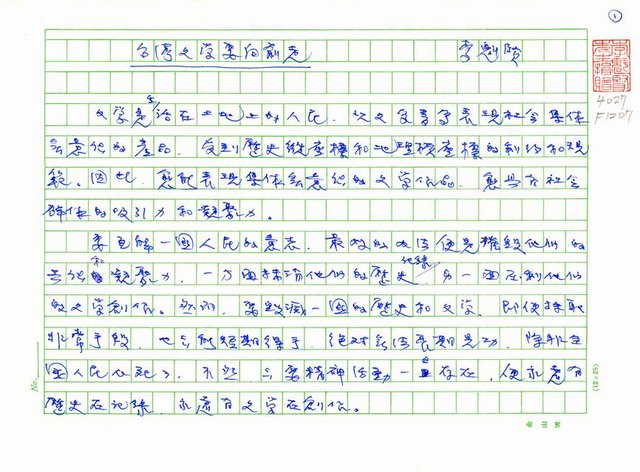 ①
台灣文學要向前走 李魁賢
李魁賢
4027
F1207
文學是生活在土地上的人民,以文字書寫表現社會集體
意識的產品,受到歷史縱座標和地理橫座標的制約和規
範。因此,愈能表現集體意識的文學作品,愈具有社會
群體的吸引力和凝聚力。
要瓦解一國人民的意志,最好的辦法便是摧毀他們的
共識和凝聚力,一方面抹消他們的歷史紀錄,另一面壓制他們
的文學創作。然而,要毀滅一國的歷史和文學,即使採取
非常手段,也只能短期得手,絕對無法長期見功,除非全
國人民化死了,不然只要精神活動一旦存在,便永遠有
歷史在記錄,永遠有文學在創作。
No.
(12×25)